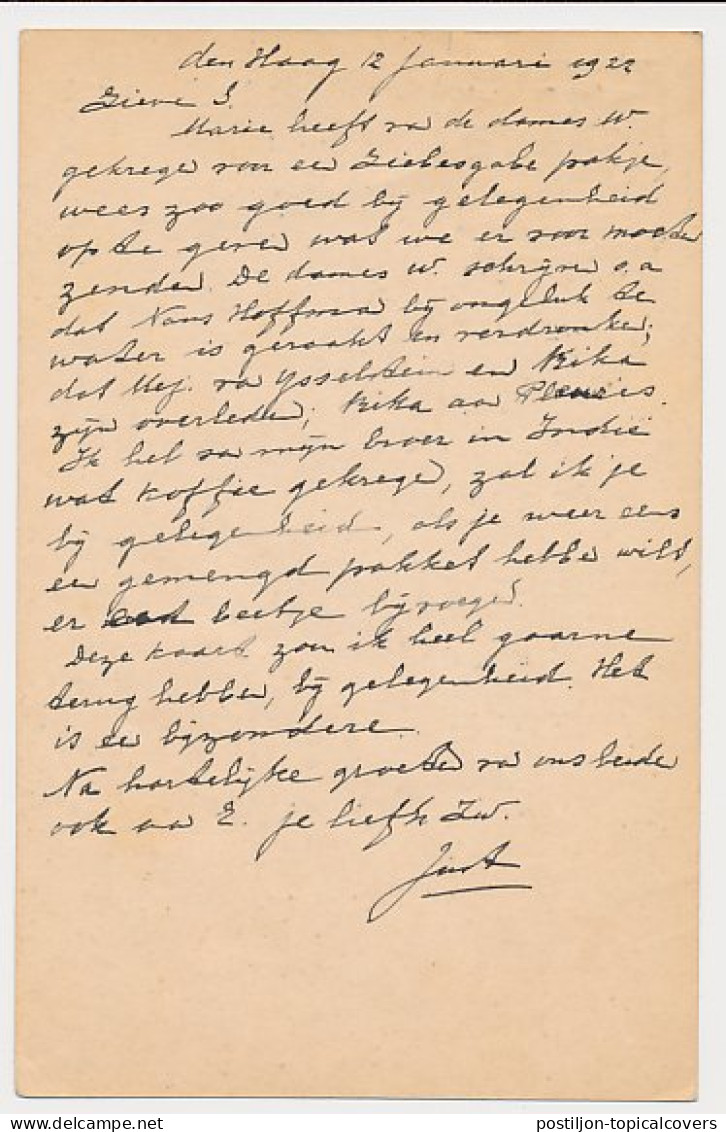 den Haag 12 Januari 1922
Lieve S.
Marie heeft va de dames W.
gekrege voor ee Liebesgabe pakje,
wees zoo goed bij gelegenheid
op te geve wat we er voor moete
zende. De dames W. schrijve o.a
dat Nans Hoffma bij ongeluk te
water is geraakt en verdronke;
dat Mej. va Ysselstein en Rika
zijn overlede; Rika aa Pleuris.
Ik heb va mijn broer in Indië
wat koffie gekrege, zal ik je
bij gelegenheid, als je weer eens
ee gemengd pakket hebbe wilt,
er beetje bijvoege?
Deze kaart zou ik heel gaarne
terug hebbe, bij gelegenheid. Het
is ee bijzondere.
Na hartelijke groete va ons beide
ook aa E. je liefh Zw.
Just
delcampe.net
postiljon-topicalcovers